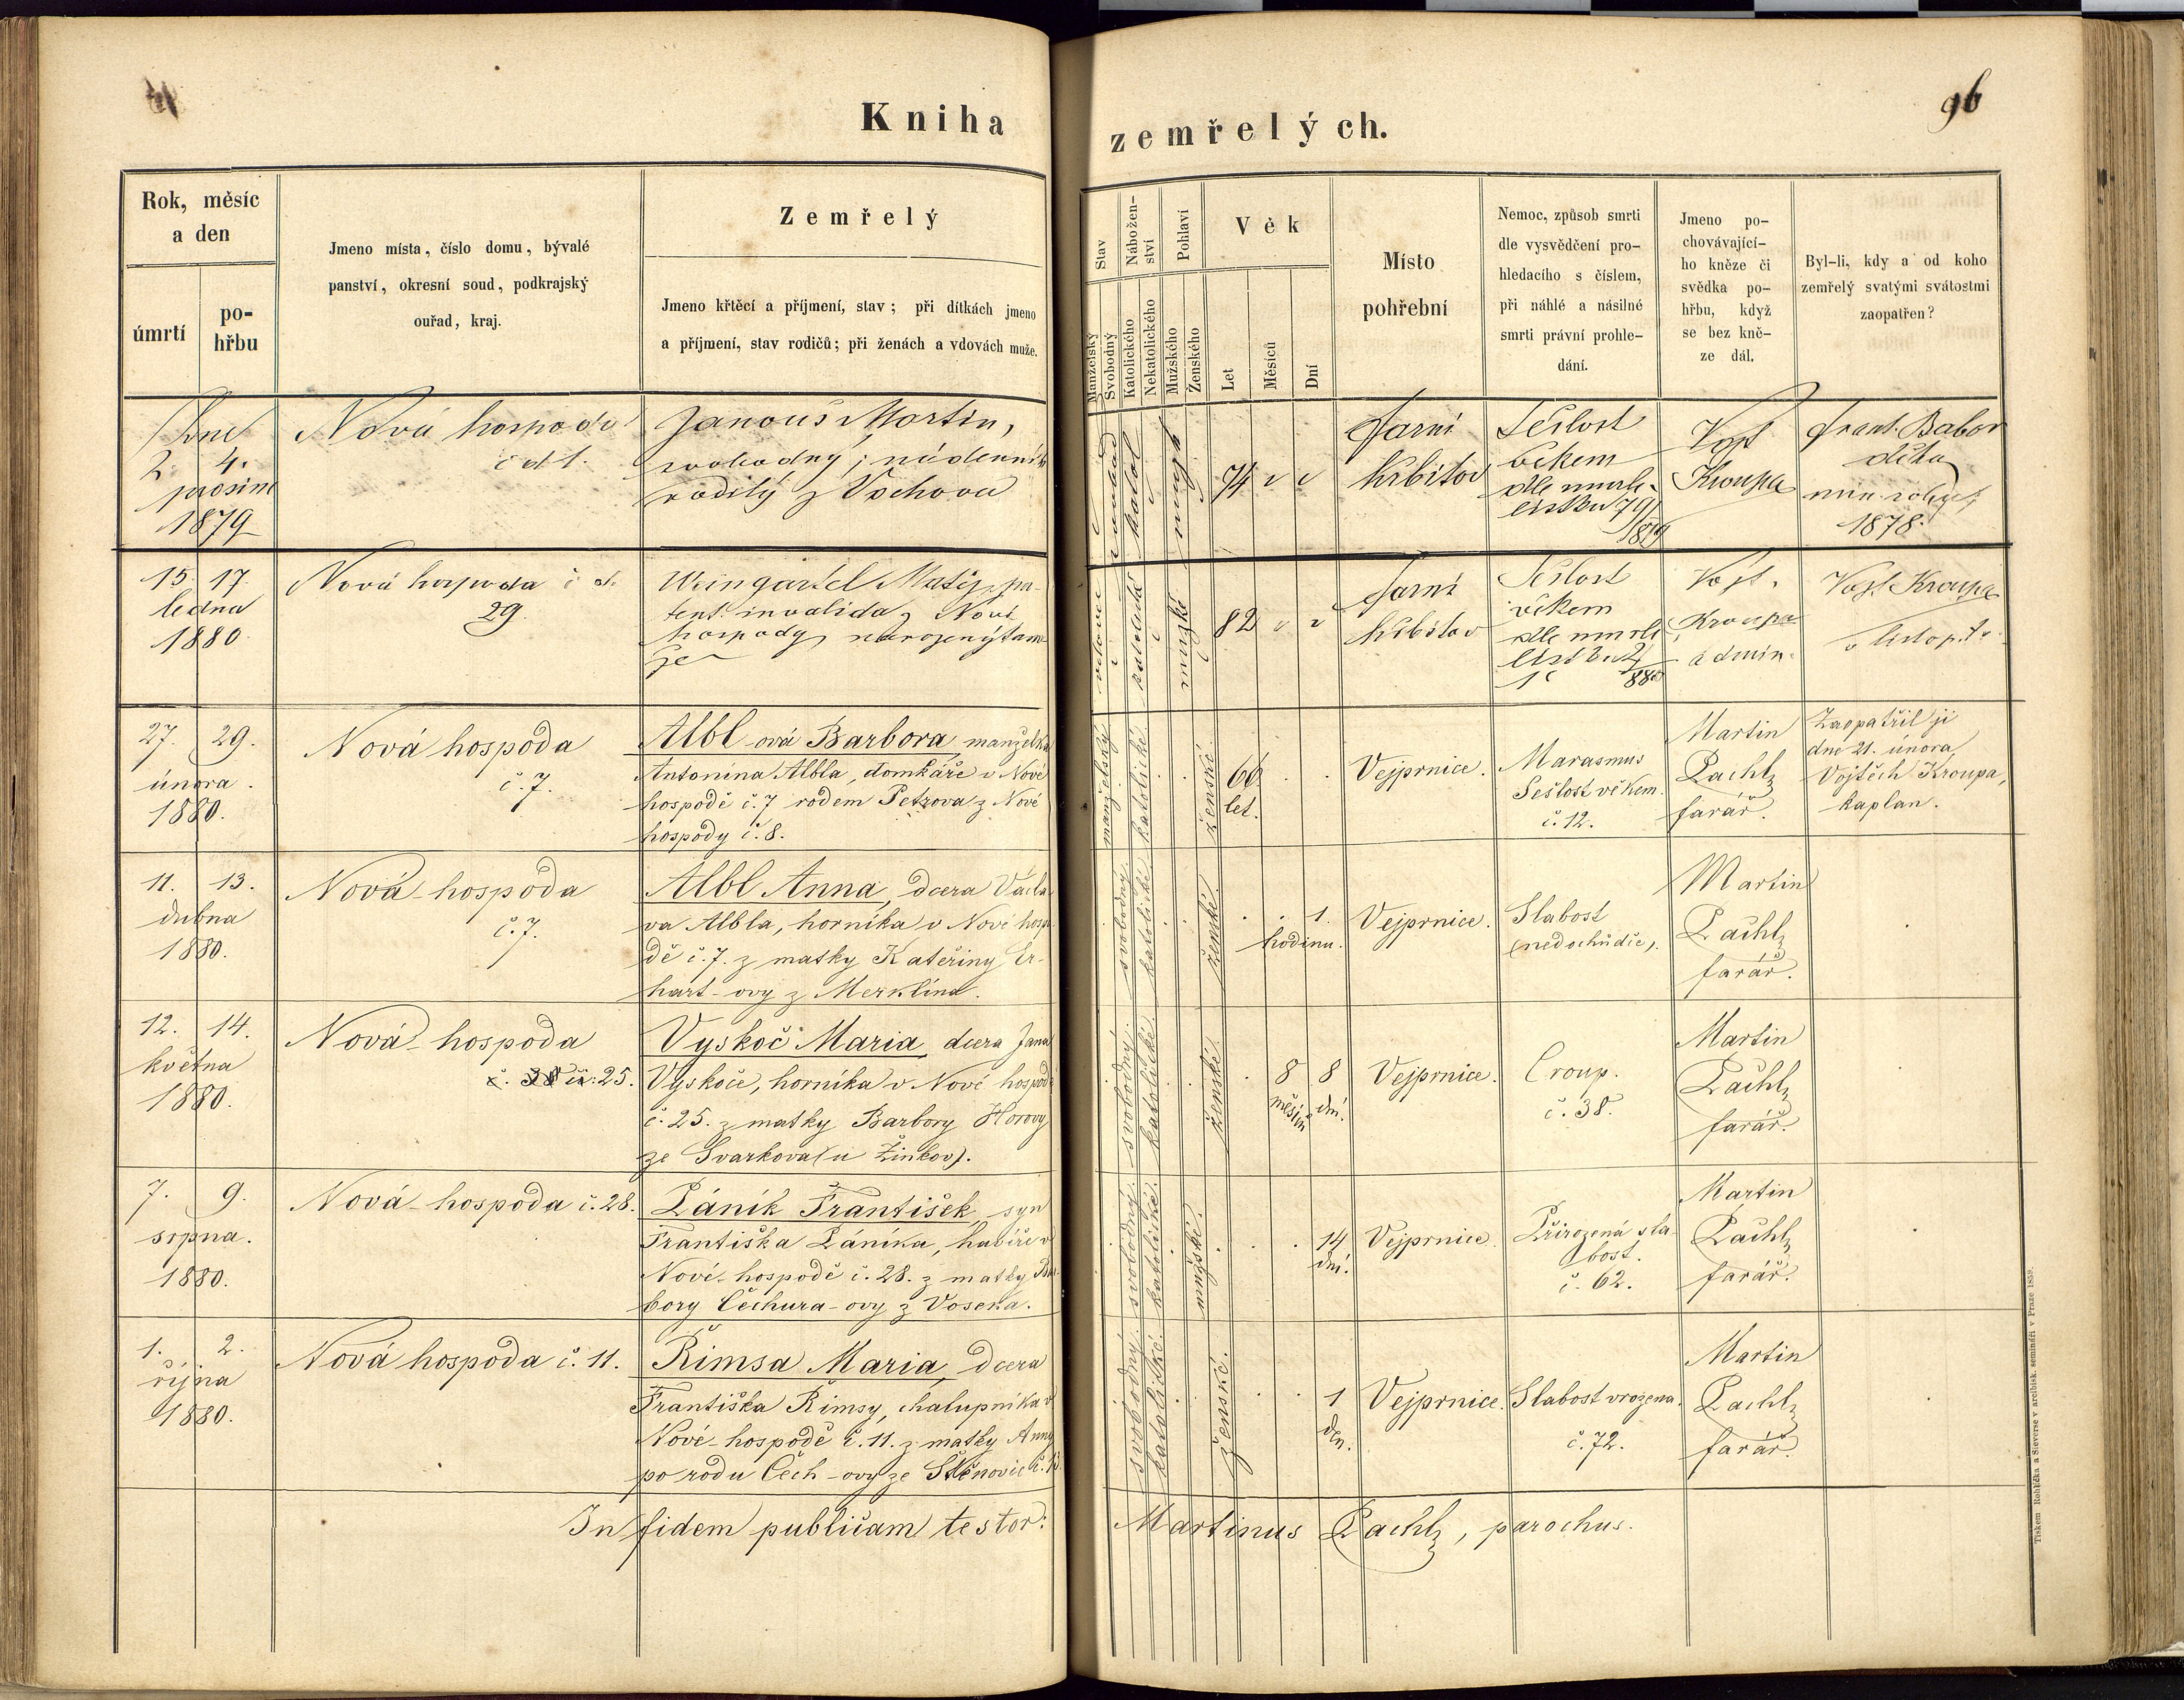 Kniha zemřelých.
96
Rok, měsíc
a den
úmrtí
po-
hřbu
Jmeno místa, číslo domu, bývalé
panství, okresní soud, podkrajský
ouřad, kraj.
Zemřelý
Jmeno křtěcí a příjmení, stav; při dítkách jmeno
a příjmení, stav rodičů; při ženách a vdovách muže.
Stav
Manželský
Svobodný
Nábožen-
ství
Katolického
Nekatolického
Pohlaví
Mužského
Ženského
Věk
Let
Měsíců
Dní
Místo
pohřební
Nemoc, způsob smrti
dle vysvědčení pro-
hledacího s číslem,
při náhlé a násilné
smrti právní prohle-
dání.
Jmeno po-
chovávající-
ho kněze či
svědka po-
hřbu, když
se bez kně-
ze dál.
Byl-li, kdy a od koho
zemřelý svatými svátostmi
zaopatřen?
2. 4.
prosince
1879
Nová hospoda
č d 1.
Janouš Martin,
svobodný, nádenník
rodilý z Vochova
katol
mužsk
74
Farní
hřbitov
Sešlost
věkem
dle umrlč.
lístku 79/
1879
Vojt
Kroupa
Frant. Babor
děka
min. roku
1878.
15. 17.
ledna
1880
Nová hospoda č d.
29.
Weingartel Matěj, pa-
tent. invalida z Nové
hospody, narozený tam-
že
mužské
82
Farní
hřbitov
Sešlost
věkem
dle umrlč
lístku 2/
1880
Vojt.
Kroupa
admin.
Vojt Kroupa
v listop.
27. 29.
února.
1880.
Nová hospoda
č. 7.
Albl-ová Barbora, manželka
Antonína Albla, domkáře v Nové
hospodě č. 7 rodem Petzova z Nové
hospody č. 8.
manželský
katolické
ženské
66
let.
Vejprnice.
Marasmus
Sešlost věkem.
č. 12.
Martin
Pachlz
farář.
Zaopatřil ji
dne 21. února
Vojtěch Kroupa,
kaplan.
11. 13.
dubna
1880.
Nová-hospoda
č. 7.
Albl Anna, dcera Václa-
va Albla, horníka v Nové hospo-
dě č. 7. z matky Kateřiny Er-
hart-ovy z Merklína.
svobodný.
katolické
ženské.
1.
hodinu.
Vejprnice.
Slabost
(nedochůdče).
Martin
Pachlz
farář.
12. 14.
května
1880.
Nová-hospoda
č. 38 č.: 25.
Vyskoč Maria, dcera Jana
Vyskoče, horníka v Nové hospodě
č. 25. z matky Barbory Horovy
ze Svarkova (u Žinkov).
svobodný.
katolické
ženské.
8 8
měsíců dní.
Vejprnice.
Croup.
č. 38.
Martin
Pachlz
farář.
7. 9.
srpna.
1880.
Nová-hospoda č. 28.
Páník František, syn
Františka Páníka, havíře v
Nové-hospodě č. 28. z matky Bar-
bory Čechura-ovy z Voseka.
svobodný.
katolické.
mužské.
14
dní.
Vejprnice.
Přirozená sla-
bost.
č. 62.
Martin
Pachlz
farář.
1. 2.
října
1880.
Nová hospoda č. 11.
Římsa Maria, dcera
Františka Římsy, chalupníka v
Nové-hospodě č. 11. z matky Anny
po rodu Čech-ovy ze Štěnovic č.
svobodný.
katolické.
ženské.
1
den.
Vejprnice.
Slabost vrozena.
č. 72.
Martin
Pachlz
farář.
In fidem publicam testor: Martinus Pachlz, parochus.
Tiskem Rohlíčka a Sieverse v arcibisk. semináři v Praze 1859.